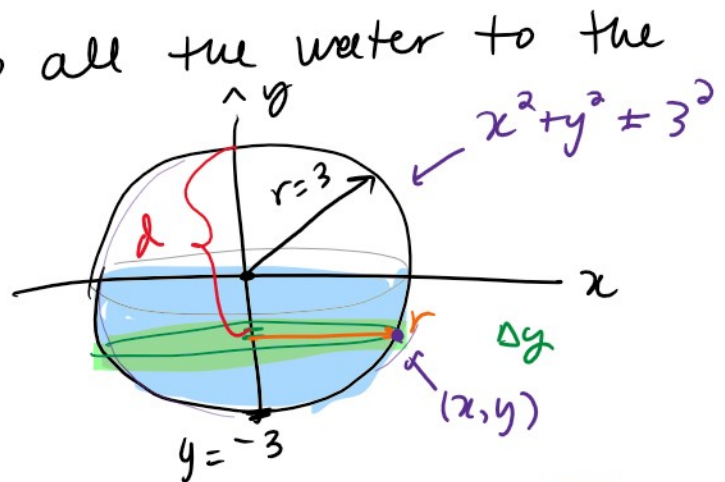 all the water to the
y
x²+y² = 3²
r=3
d
x
r
Δy
(x,y)
y = -3